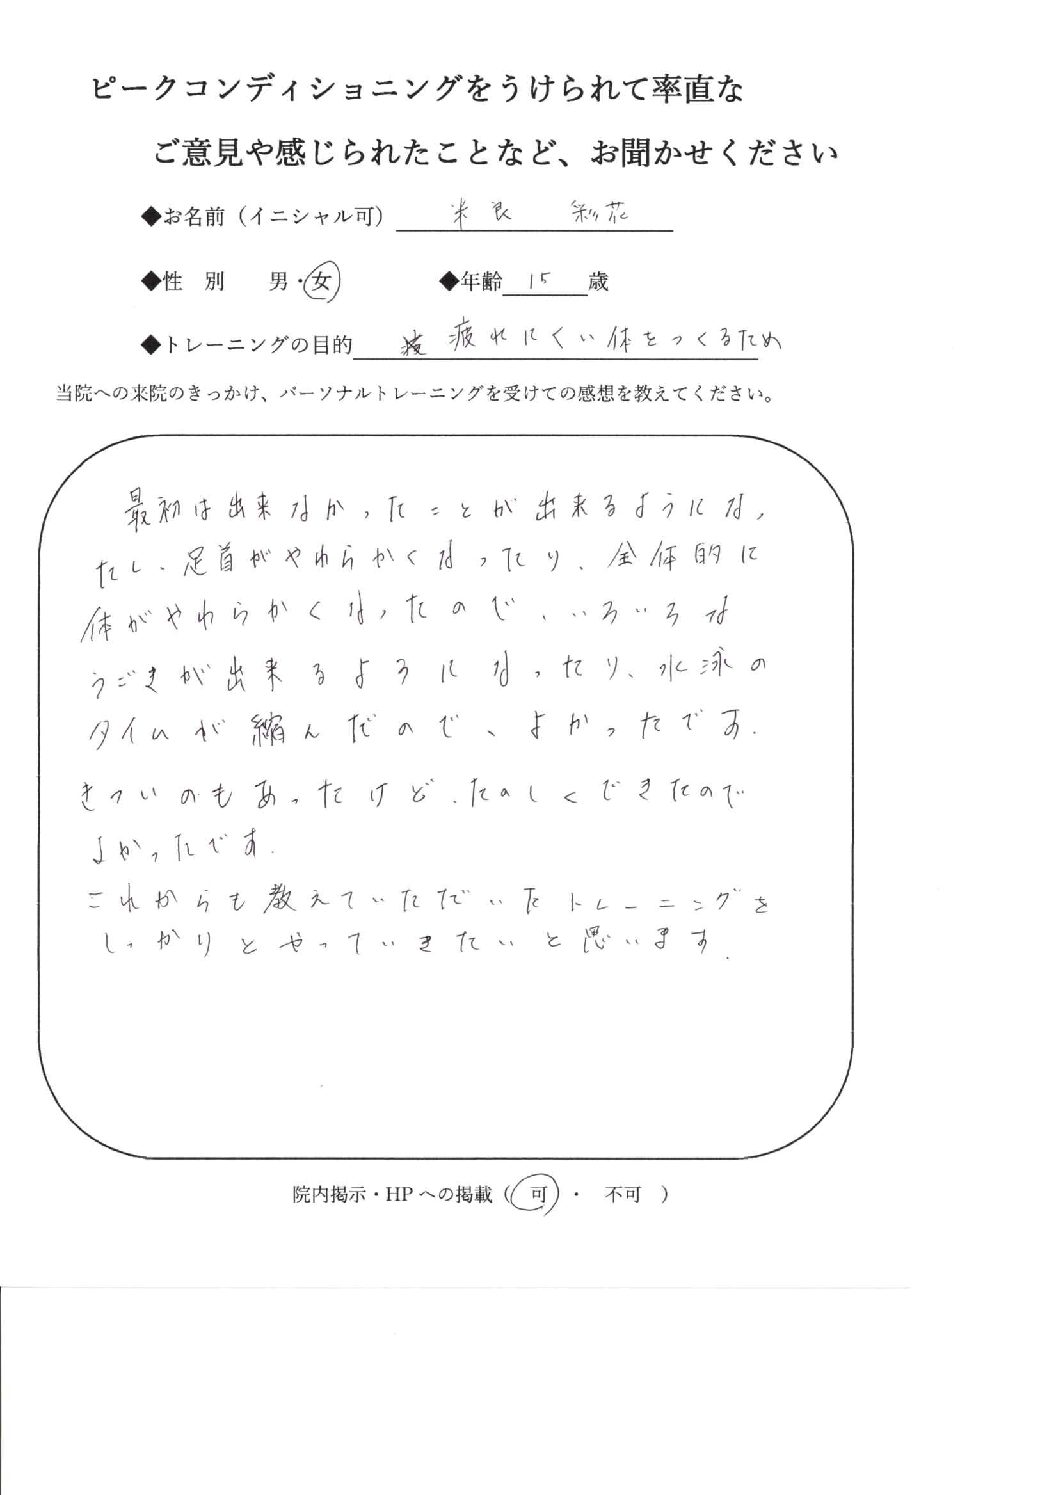 ピークコンディショニングをうけられて率直な
ご意見や感じられたことなど、お聞かせください
◆お名前（イニシャル可） 米良 彩花
◆性 別 男・女 ◆年齢 15 歳
◆トレーニングの目的 疲れにくい体をつくるため
当院への来院のきっかけ、パーソナルトレーニングを受けての感想を教えてください。
最初は出来なかったことが出来るようになっ
たし、足首がやわらかくなったり、全体的に
体がやわらかくなったので、いろいろな
うごきが出来るようになったり、水泳の
タイムが縮んだので、よかったです。
きついのもあったけど、たのしくできたので
よかったです。
これからも教えていただいたトレーニングを
しっかりとやっていきたいと思います。
院内掲示・HPへの掲載（ 可 ・ 不可 ）